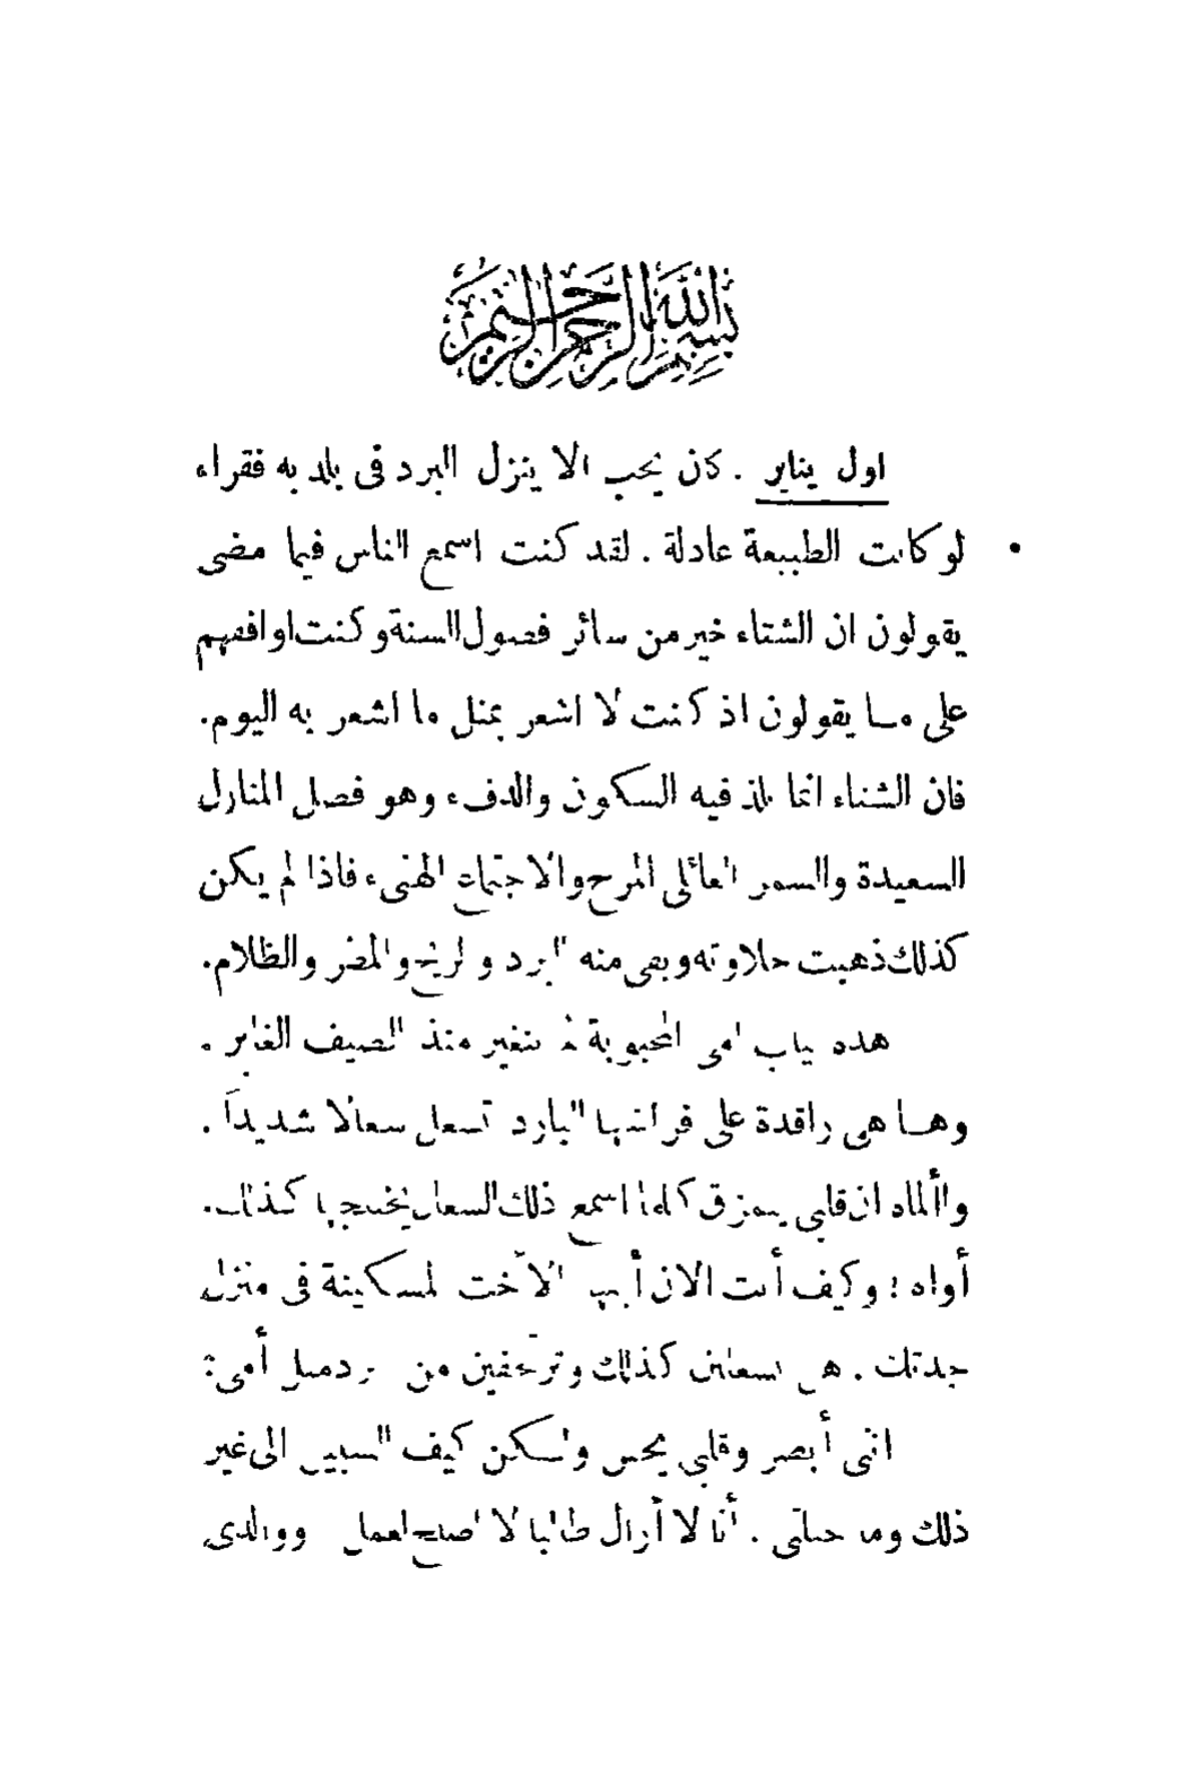 بسم الله الرحمن الرحيم
اول يناير . كان يجب الا ينزل البرد فى بلد به فقراء
لو كانت الطبيعة عادلة . لقد كنت اسمع الناس فيما مضى
يقولون ان الشتاء خير من سائر فصول السنة وكنت اوافقهم
على ما يقولون اذ كنت لا اشعر بمثل ما اشعر به اليوم.
فان الشتاء انما يلذ فيه السكون والدفء وهو فصل المنازل
السعيدة والسمر العائلى المرح والاجتماع الهنىء فاذا لم يكن
كذلك ذهبت حلاوته وبقى منه البرد والريح والمطر والظلام.
هذه ثياب امى المحبوبة لم تتغير منذ الصيف الغابر .
وها هى راقدة على فراشها البارد تسعل سعالا شديداً .
واألماه ان قلبى يتمزق كلما اسمع ذلك السعال يخلجها كذلك.
أواه ! وكيف أنت الان أيتها الاخت المسكينة فى منزل
جدتك . هل تسعلين كذلك وترتجفين من برد مثل أمى؟
اننى أبصر وقلبى يحس ولكن كيف السبيل الى غير
ذلك وما حيلتى . أنا لا أزال طالبا لا اصلح لعمل ووالدى